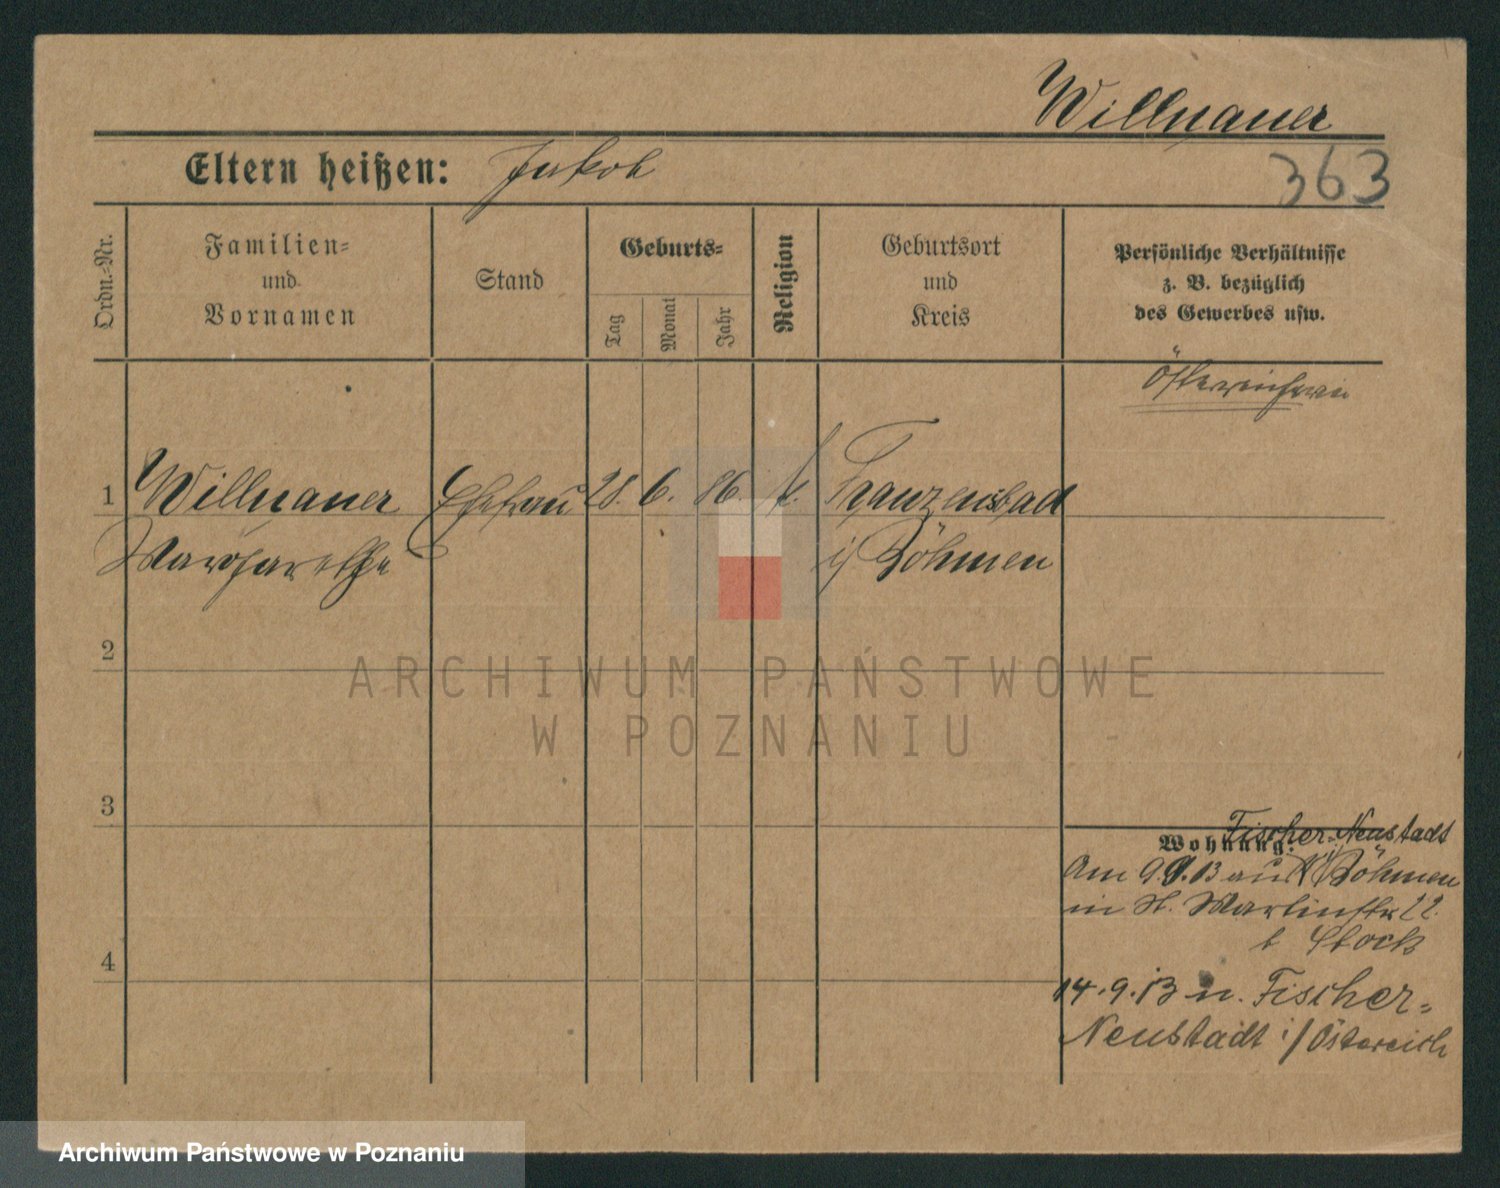 Willnauer
Eltern heißen: Jakob
363
Ordn.-Nr.
Familien-
und
Vornamen
Stand
Geburts-
Tag
Monat
Jahr
Religion
Geburtsort
und
Kreis
Persönliche Verhältnisse
z. B. bezüglich
des Gewerbes usw.
Österreicherin
1 Willnauer Ehefrau 28. 6. 86. k. Franzensbad
Margarethe i/ Böhmen
2
3
Fischer-Neustadt
Wohnung:
Am 9.9.13 aus i/ Böhmen
in St. Martinstr 22.
b Stock
4
14.9.13 n. Fischer-
Neustadt i/Östereich
ARCHIWUM PAŃSTWOWE
W POZNANIU
Archiwum Państwowe w Poznaniu